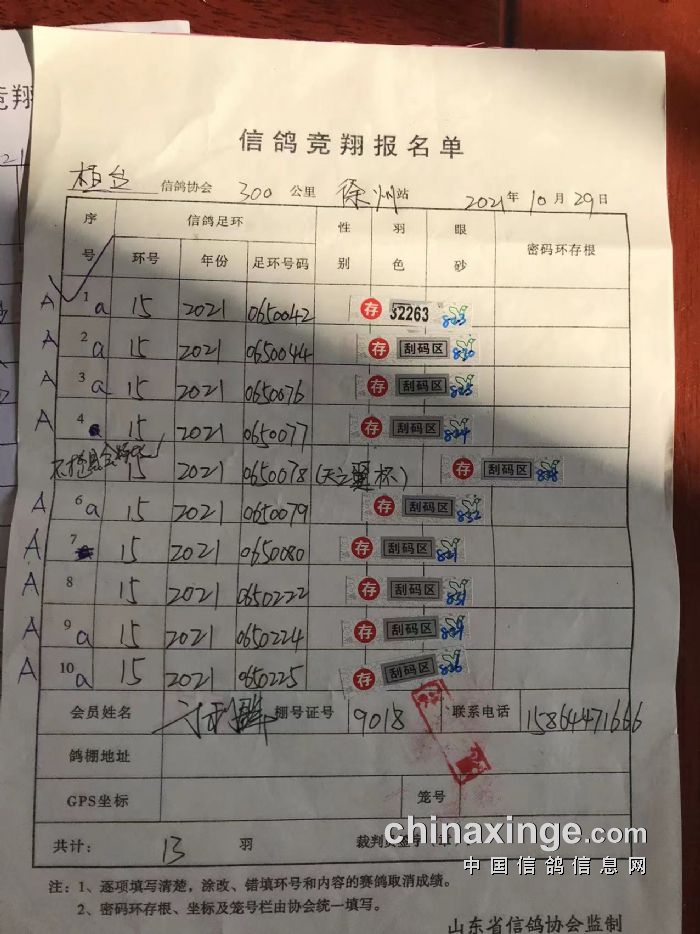 信鸽竞翔报名单
桓台 信鸽协会 300 公里 徐州 站 2021 年 10 月 29 日
序号 信鸽足环 性别 羽色 眼砂 密码环存根
环号 年份 足环号码
A 1 a 15 2021 0650042 存 32263
A 2 a 15 2021 0650044 存 刮码区
A 3 a 15 2021 0650076 存 刮码区
A 4 15 2021 0650077 存 刮码区
15 2021 0650078 (天之翼杯) 存 刮码区
A 6 a 15 2021 0650079 存 刮码区
A 7 15 2021 0650080 存 刮码区
A 8 15 2021 0650222 存 刮码区
A 9 a 15 2021 0650224 存 刮码区
A 10 a 15 2021 0650225 存 刮码区
会员姓名 棚号证号 9018 联系电话 15864471666
鸽棚地址
GPS坐标 笼号
共计: 13 羽 裁判员签字
chinaxinge.com
中国信鸽信息网
注：1、逐项填写清楚，涂改、错填环号和内容的赛鸽取消成绩。
2、密码环存根、坐标及笼号栏由协会统一填写。
山东省信鸽协会监制